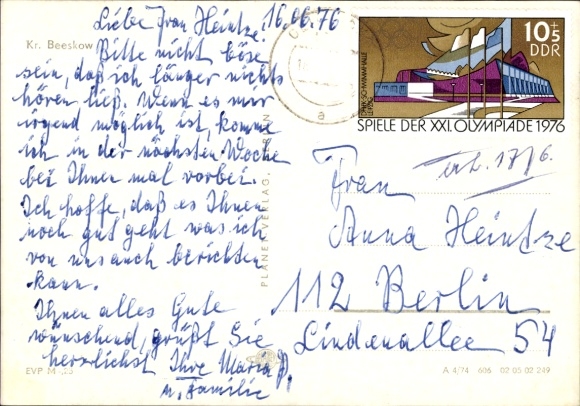 Liebe Frau Heintze. 16.06.76
Bitte nicht böse
sein, daß ich länger nichts
hören ließ. Wenn es nur
irgend möglich ist, komme
ich in der nächsten Woche
bei Ihnen mal vorbei.
Ich hoffe, daß es Ihnen
noch gut geht was ich
von uns auch berichten
kann.
Ihnen alles Gute
wünschend, grüßt Sie
herzlichst Ihre Maria P.
u. Familie
Kr. Beeskow
EVP M -,25
PLANET-VERLAG, BERLIN
10+5
DDR
SPIELE DER XXI. OLYMPIADE 1976
erh. 17/6.
Frau
Anna Heintze
112 Berlin
Lindenallee 54
A 4/74 606 02 05 02 249